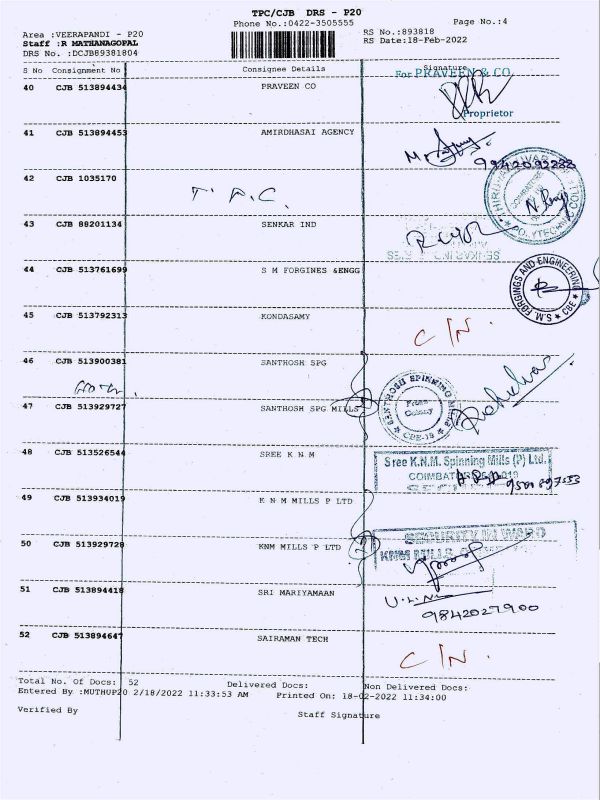 TPC/CJB DRS - P20
Phone No.:0422-3505555
Page No.:4
Area :VEERAPANDI - P20
RS No.:893818
Staff :R MATHANAGOPAL
RS Date:18-Feb-2022
DRS No. :DCJB89381804
S No Consignment No Consignee Details Signature
For PRAVEEN & CO.
40 CJB 513894434 PRAVEEN CO
Proprietor
41 CJB 513894453 AMIRDHASAI AGENCY
42 CJB 1035170
T.P.C.
43 CJB 88201134 SENKAR IND
44 CJB 513761699 S M FORGINES &ENGG
S.M. FORGINGS AND ENGINEERING CBE
45 CJB 513792313 KONDASAMY
C/N.
46 CJB 513900381 SANTHOSH SPG
47 CJB 513929727 SANTHOSH SPG MILLS
SANTHOSH SPINNING MILLS
CBE-19
48 CJB 513526544 SREE K N M
Sree K.N.M. Spinning Mills (P) Ltd.
49 CJB 513934019 K N M MILLS P LTD
50 CJB 513929728 KNM MILLS P LTD
SECURITY IN WARD
KNM MILLS
51 CJB 513894418 SRI MARIYAMAAN
9842027900
52 CJB 513894647 SAIRAMAN TECH
C/N.
Total No. Of Docs: 52 Delivered Docs: Non Delivered Docs:
Entered By :MUTHUP20 2/18/2022 11:33:53 AM Printed On: 18-02-2022 11:34:00
Verified By Staff Signature